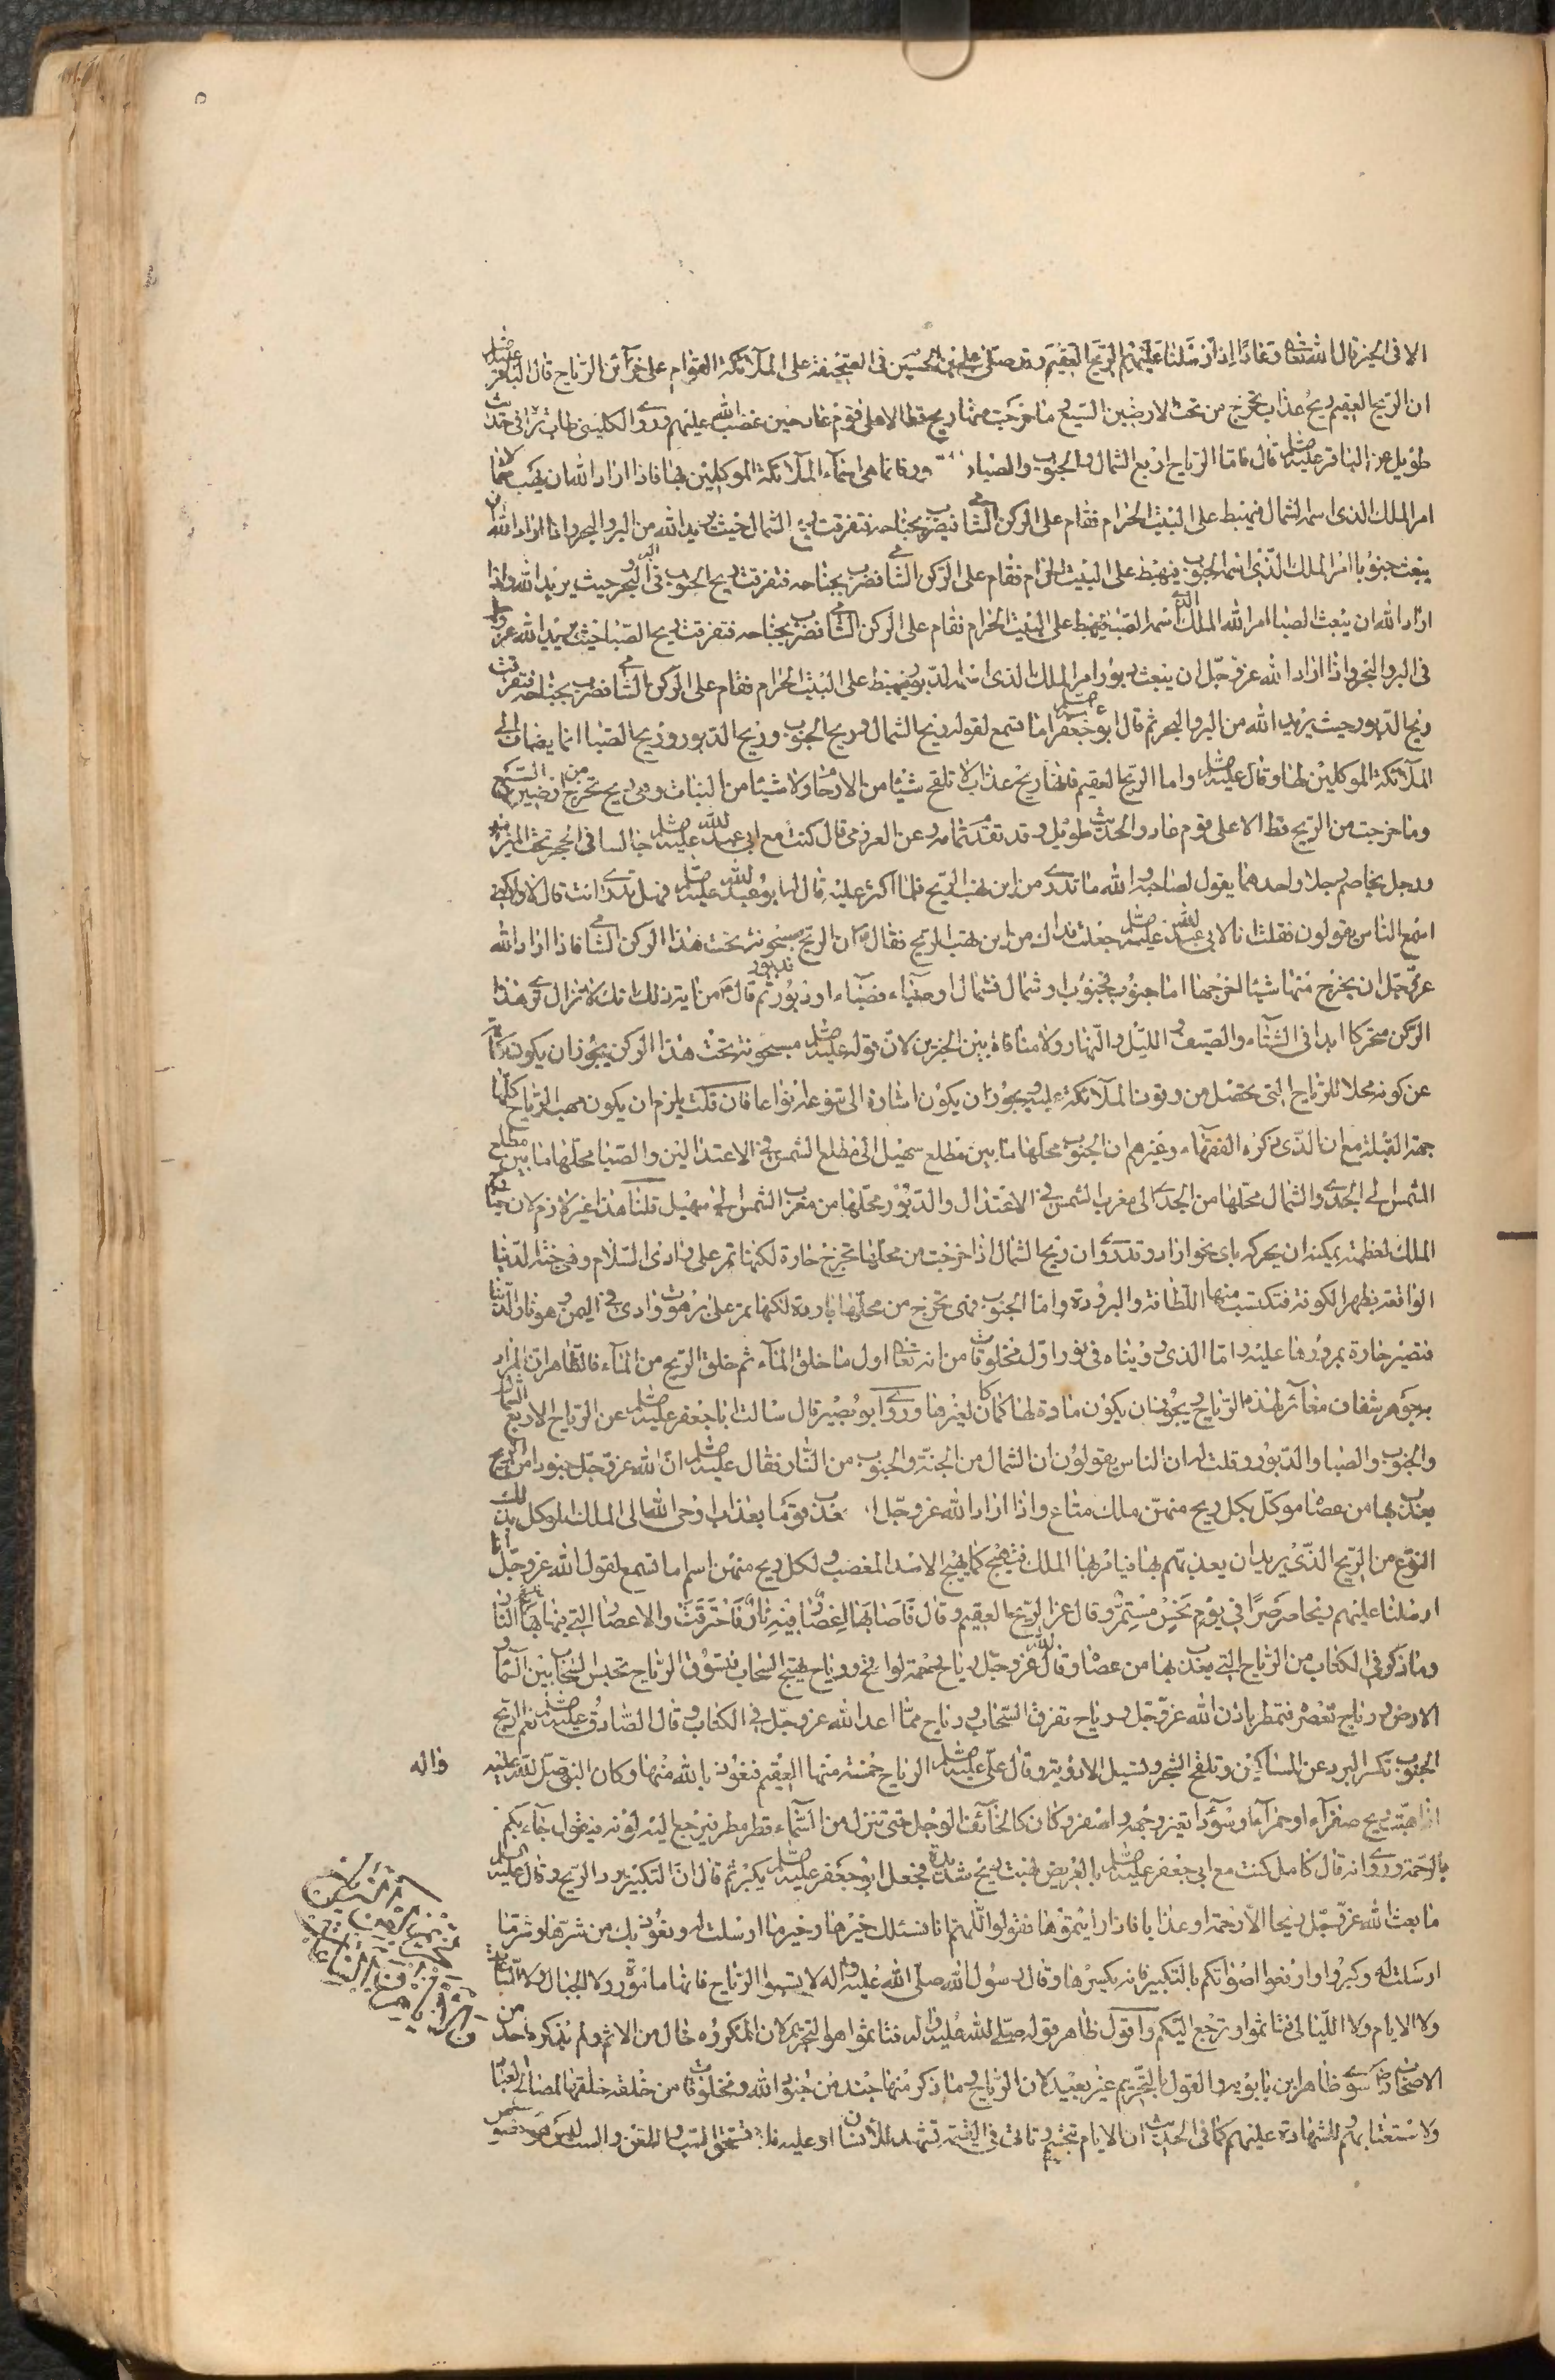 الا فى الخير قال الله تعالى وعادا إذ أرسلنا عليهم الريح العقيم وقد صلى علي بن الحسين فى الصحيفة على الملائكة القوام على خزآئن الرياح قال الباقر عليه السلم
ان الريح العقيم ريح عذاب تخرج من تحت الارضين السبع وما خرجت منها ريح قط الا على قوم عاد حين غضب الله عليهم وروى الكلينى طاب ثراه فى حديث
طويل عن الباقر عليه السلم قال فاما الرياح اربع الشمال والجنوب والصبا والدبور فانما هى اسمآء الملآئكة الموكلين بها فاذا اراد الله ان يهب شمالا
امر الملك الذى اسمه الشمال فيهبط على البيت الحرام فقام على الركن الشامى فضرب بجناحه فتفرقت ريح الشمال حيث يريد الله من البر والبحر واذا اراد الله ان
يبعث جنوبا امر الملك الذى اسمه الجنوب فيهبط على البيت الحرام فقام على الركن الشامى فضرب بجناحه فتفرقت ريح الجنوب فى البر والبحر حيث يريد الله واذا
اراد الله ان يبعث الصبا امر الله الملك الذى اسمه الصبا فيهبط على البيت الحرام فقام على الركن الشامى فضرب بجناحه فتفرقت ريح الصبا حيث يريد الله عز وجل
فى البر والبحر واذا اراد الله عز وجل ان يبعث دبورا امر الملك الذى اسمه الدبور فيهبط على البيت الحرام فقام على الركن الشامى فضرب بجناحه فتفرقت
ريح الدبور حيث يريد الله من البر والبحر ثم قال ابو جعفر عليه السلم اما تسمع لقوله ريح الشمال وريح الجنوب وريح الدبور وريح الصبا انما يضاف الى
الملآئكة الموكلين بها وقال عليه السلم واما الريح العقيم فانها ريح عذاب لا تلقح شيئا من الارحام ولا شيئا من النبات وهى ريح تخرج من ارضين السبع
وما خرجت من الريح قط الا على قوم عاد والحديث طويل وقد تقدم تمامه وعن العرزمى قال كنت مع ابى عبد الله عليه السلم جالسا فى الحجر تحت الميزاب
ورجل يخاصم رجلا واحدهما يقول لصاحبه والله ما تدرى من اين تهب الريح فلما اكثر عليه قال له ابو عبد الله عليه السلم فهل تدرى انت قال لا ولكنى
اسمع الناس يقولون فقلت انا لابى عبد الله عليه السلم جعلت فداك من اين تهب الريح فقال ان الريح مسجونة تحت هذا الركن الشامى فاذا اراد الله
عز وجل ان يخرج منها شيئا اخرجها اما جنوب فجنوب او شمال فشمال او صبآء فصبآء او دبور فدبور ثم قال من اية ذلك انك لا تزال ترى هذا
الركن متحركا ابدا فى الشتآء والصيف والليل والنهار ولا منافاة بين الخبرين لان قوله عليه السلم مسجونة تحت هذا الركن يجوز ان يكون كناية
عن كونه محلا للرياح التى تحصل من وقوف الملآئكة عليه ويجوز ان يكون اشارة الى تنوعها انواعا فان قلت يلزم ان يكون مهب الرياح كلها
جهة القبلة مع ان الذى ذكره الفقهآء وغيرهم ان الجنوب محلها ما بين مطلع سهيل الى مطلع الشمس فى الاعتدالين والصبا محلها ما بين مطلع
الشمس الى الجدى والشمال محلها من الجدى الى مغرب الشمس فى الاعتدال والدبور محلها من مغرب الشمس الى سهيل قلنا هذا غير لازم لان جناح
الملك لعظمته يمكنه ان يحركه باى نحو اراد وقد روى ان ريح الشمال اذا خرجت من محلها تخرج حارة لكنها تمر على وادى السلام وهى جنة الدنيا
الواقعة بظهر الكوفة فتكتسب منها اللطافة والبرودة واما الجنوب فهى تخرج من محلها باردة لكنها تمر على برهوت وادى فى اليمن وهو نار الدنيا
فتصير حارة بمرورها عليه واما الذى رويناه فى نور اول مخلوقات من انه تعالى اول ما خلق المآء ثم خلق الريح من المآء فالظاهر ان المراد
به جوهر شفاف مغآئر لهذه الرياح ويجوز ان يكون مادة لها كما كان لغيرها وروى ابو بصير قال سالت ابا جعفر عليه السلم عن الرياح الاربع الشمال
والجنوب والصبا والدبور وقلت له ان الناس يقولون ان الشمال من الجنة والجنوب من النار فقال عليه السلم ان الله عز وجل جنودا من الريح
يعذب بها من عصاه موكل بكل ريح منهن ملك مطاع واذا اراد الله عز وجل ان يعذب قوما بعذاب اوحى الله الى الملك الموكل بذلك
النوع من الريح الذى يريد ان يعذبهم بها فيامر بها الملك فتهيج كما يهيج الاسد المغضب ولكل ريح منهن اسم اما تسمع لقول الله عز وجل انا
ارسلنا عليهم ريحا صرصرا فى يوم نحس مستمر وقال عز الريح العقيم وقال فاصابها اعصار فيه نار فاحترقت والاعصار التى فيها النار
وما ذكر فى الكتاب من الرياح التى يعذب بها من عصاه وقال لله عز وجل رياح رحمة لواقح ورياح تهيج السحاب فتسوق الرياح تحبس السحاب بين السمآء و
الارض ورياح تعصر فتمطر باذن الله عز وجل ورياح تفرق السحاب ورياح مما اعد الله عز وجل فى الكتاب وقال الصادق عليه السلم نعم الريح
الجنوب تكسر البرد عن المساكين وتلقح الشجر وتسيل الاودية وقال على عليه السلم الرياح خمسة منها العقيم فنعوذ بالله منها وكان النبى صلى الله عليه واله
اذا هبت ريح صفرآء او حمرآء او سودآء تغير وجهه واصفر وكان كالخآئف الوجل حتى تنزل من السمآء قطرة مطر فيرجع اليه لونه فيقول جآءتكم
بالرحمة وروى انه قال كامل كنت مع ابى جعفر عليه السلم بالعريض فهبت ريح شديدة فجعل ابو جعفر عليه السلم يكبر ثم قال ان التكبير يرد الريح وقال عليه السلم
ما بعث الله عز وجل ريحا الا رحمة او عذابا فاذا رايتموها فقولوا اللهم انا نسئلك خيرها وخير ما ارسلت له ونعوذ بك من شرها وشر ما
ارسلت له وكبروا وارفعوا اصواتكم بالتكبير فانه يكسرها وقال رسول الله صلى الله عليه واله لا تسبوا الرياح فانها مامورة ولا الجبال ولا الساعات
ولا الايام ولا الليالى فتاثموا وترجع اليكم واقول ظاهر قوله صلى الله عليه واله فتاثموا هو التحريم لان المكروه خال من الاثم ولم يذكره احد من
الاصحاب رض سوى ظاهر ابن بابويه والقول بالتحريم غير بعيد لان الرياح وما ذكر منها جند من جنود الله ومخلوقات من خلقه خلقها لمصالح العباد
ولاستعتابهم وللشهادة عليهم كما فى الحديث ان الايام تجسم وتاتى فى القيمة تشهد للانسان او عليه